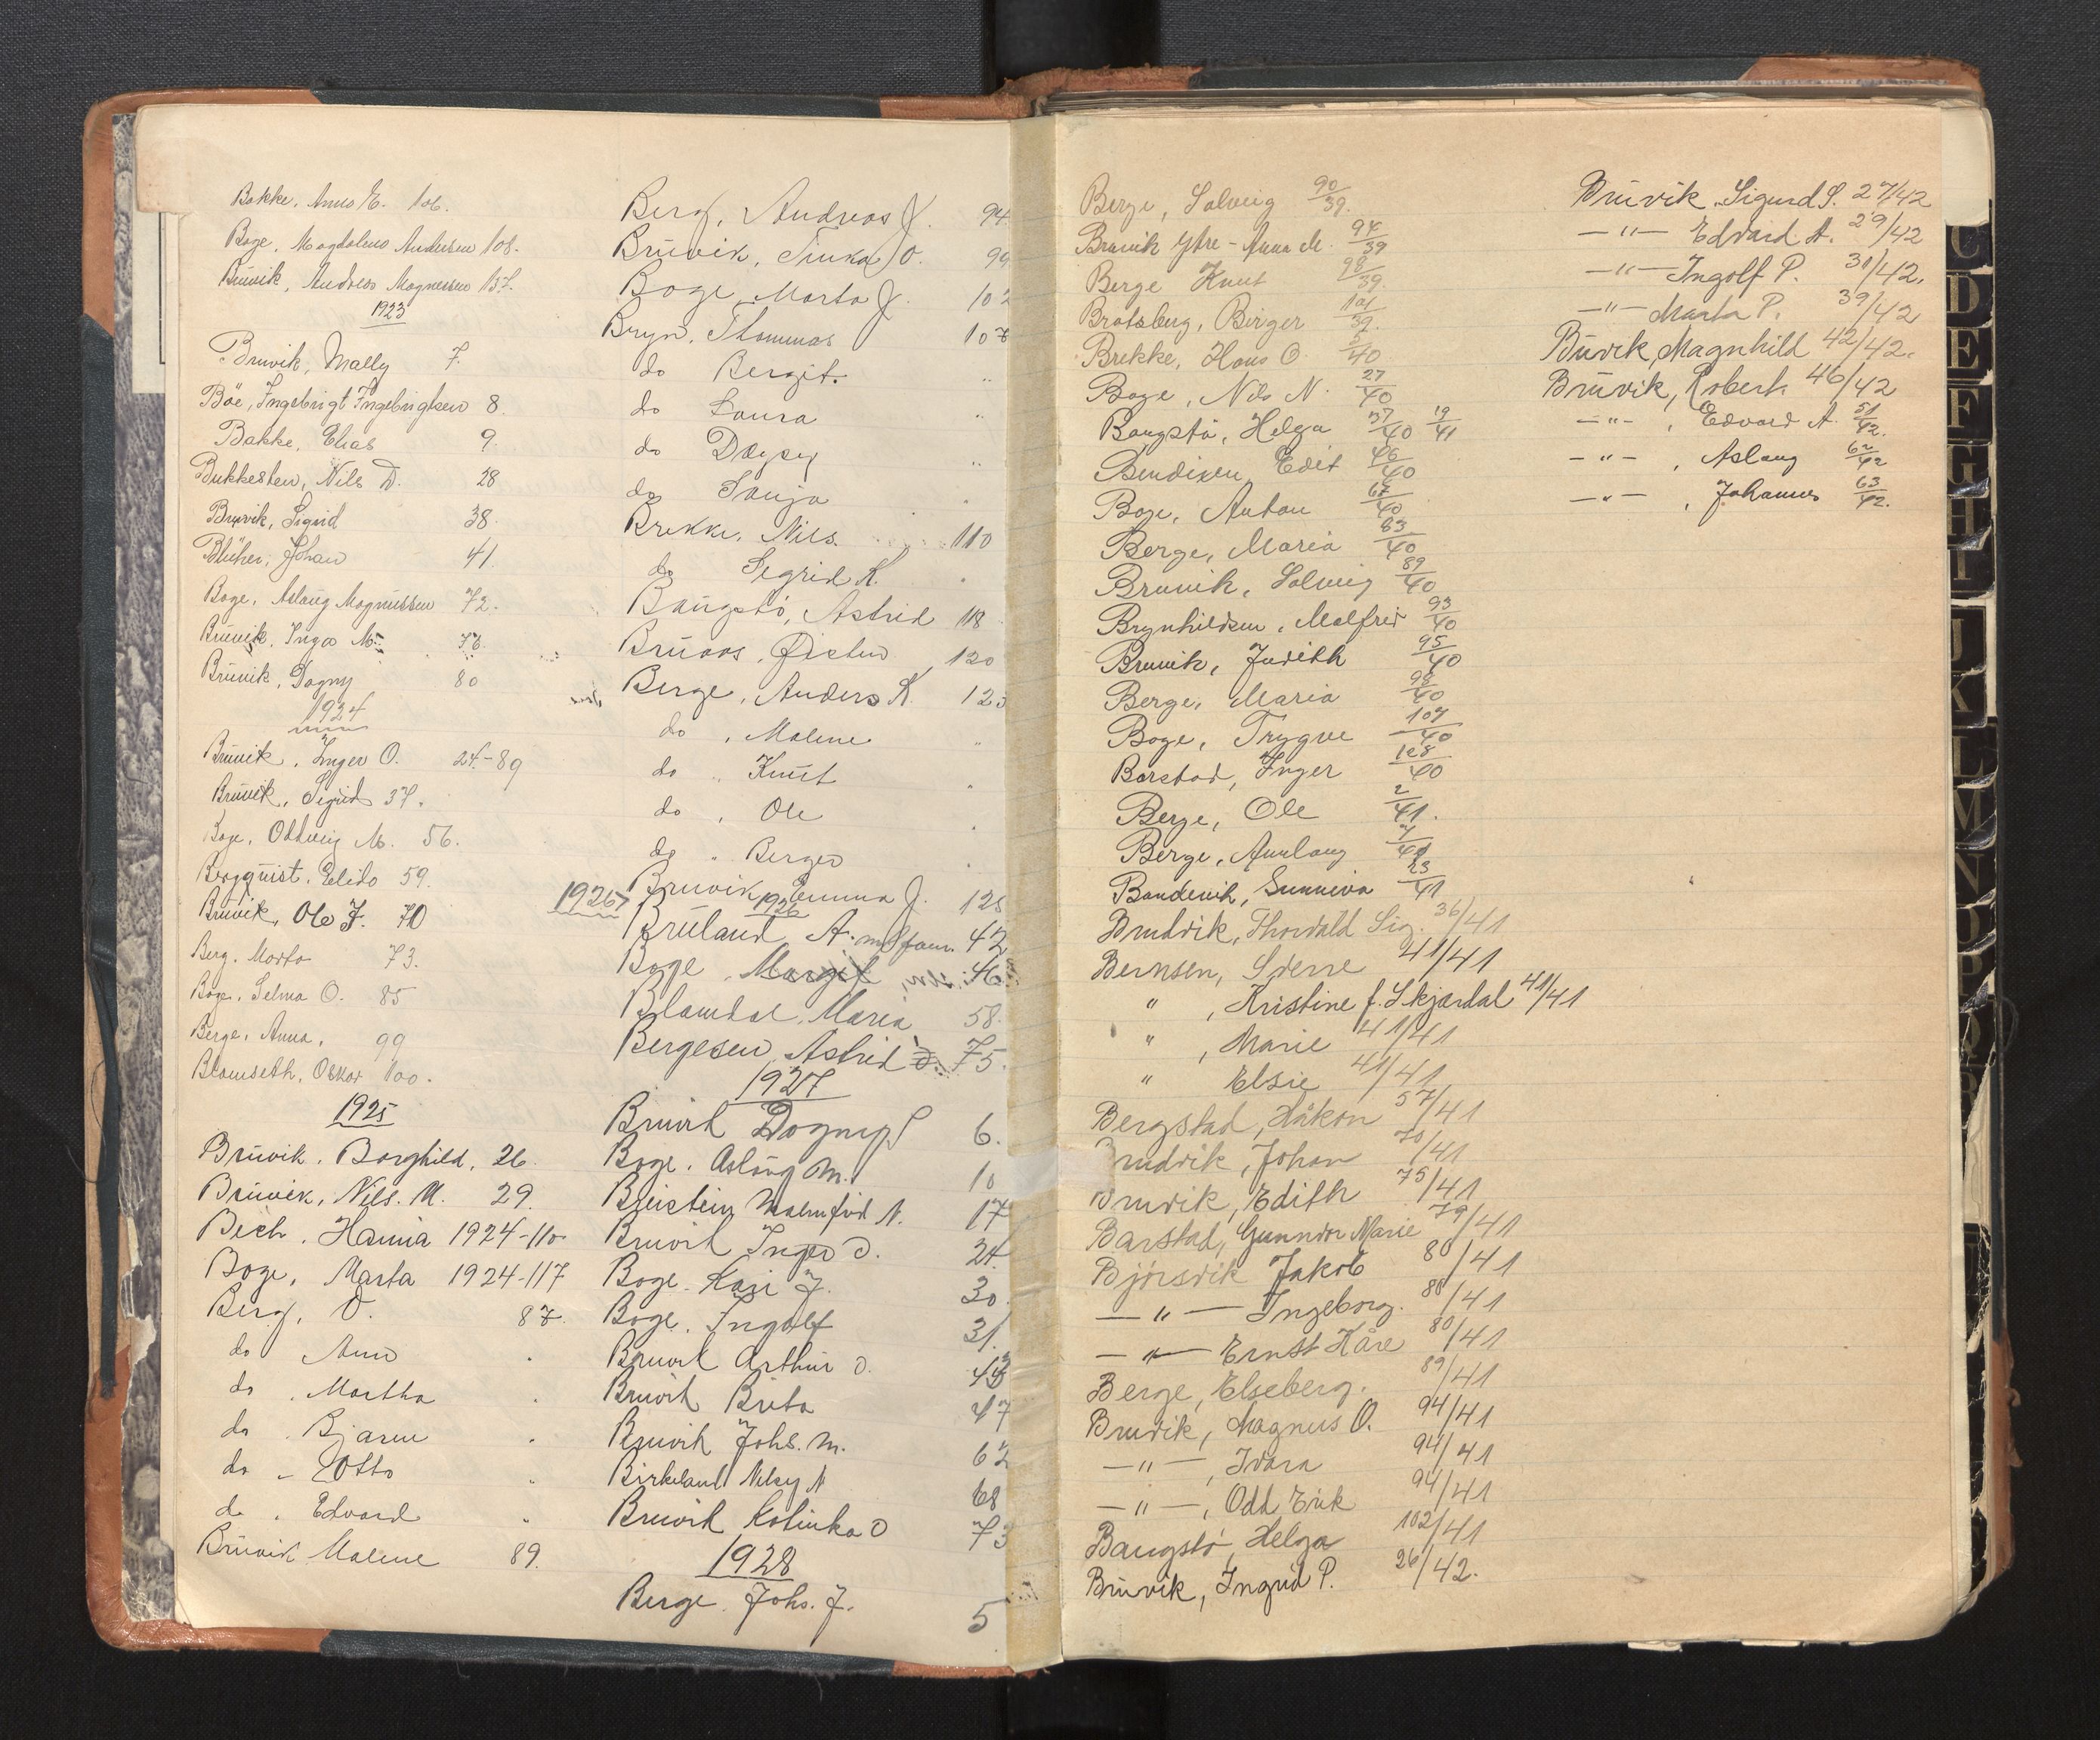 Bakke, Anna E. 106.
Boge, Magdalena Andersen 108.
Brüvik, Andreas Magnessen 137.
1923
Bruvik, Mally 7.
Böe, Ingebrigt Ingebrigtsen 8.
Bakke, Elias 9.
Bukkesten, Nils D. 28
Bruvik, Sigrid 38.
Blücher, Johan 41.
Boge, Aslaug Magnussen 72.
Brüvik, Inga M. 76.
Brüvik, Dagny 80
1924
Brüvik, Inger O. 24-89
Brüvik, Sigrid 37.
Boge, Oddveig M. 56.
Bergquist, Elida 59.
Brüvik, Ole J. 70
Berg, Marta 73.
Boge, Selma O. 85
Berge, Anna, 99
Blamseth, Oskar 100.
1925
Brüvik, Borghild, 26.
Brüvik, Nils. M. 29.
Bech, Hanna 1924-110
Boge, Marta 1924-117
Berg, O. 87.
do Anna
do, Martha
do, Bjarne
do - Otto
do, Edvard "
Brüvik Malene 89.
Berg, Andreas J. 94.
Brüvik, Trinka O. 99
Boge, Marta J. 102
Bryn, Thommas 107
do Bergit. "
do Laura "
do Daysy "
do Sonja "
Brekke, Nils. 110
do Sigrid K. "
Baugstö, Astrid 118
Brüaas, Øisten 120
Berge, Anders K. 123
do, Malene "
do " Knüt
do, Ole
do " Berger
Bruvik, Emma J. 125
1926
1926
Brüland A. m/fam. 42
Boge, Margit 46
Blamdal, Maria 58.
Bergesen, Astrid O. 75.
1927
Bruvik Dagny J 6.
Boge. Aslaug M. 10
Breistein Malmfrid N. 17
Bruvik Inger O. 24.
Boge. Kari J. 30.
Boge. Ingolf 31.
Bruvik Arthur O.
Bruvik Brita 47
Bruvik Johs. M. 62
Birkeland Nelsy N 68
Bruvik Katinka O 73
1928
Berge. Johs. J. 5
Berge, Solveig 90/39.
Bruvik Ytre - Anna M. 94/39
Berge Knut 98/39.
Bratsberg, Birger 101/39
Brekke, Hans O. 5/40
Boge, Nils N. 27/40
Baugstö, Helga 37/40 19/41
Bendixen, Edit 46/40
Boge, Anton 67/40
Berge, Maria 83/40
Bruvik, Solveig 89/40
Brynhildsen, Malfrid 93/40
Bruvik, Judith 95/40
Berge, Maria 98/40
Boge, Trygve 107/40
Barstad, Inger 128/40
Berge, Ole 2/41.
Berge, Aunlaug 7/41
Bandevik, Sunneva 23/41
Bruvik, Thorvald Sig. 36/41
Bernsen, Sverre 41/41
", Kristine f. Skjærdal 41/41
", Marie 41/41
" Elsie 41/41
Bergstad, Håkon 57/41
Bruvik, Johan 70/41
Bruvik, Edith 75/41
Barstad, Gunnvor Marie 79/41
Bjørsvik Jakob 80/41
— " — Ingeborg. 80/41
— " — Ernst Kåre 80/41
Berge, Elseberg. 89/41
Bruvik, Magnus O. 94/41
— " —, Ivara 94/41
— " —, Odd Erik 94/41
Baugstö, Helga 102/41
Brüvik, Ingrid P. 26/42.
Brüvik, Sigurd S. 27/42
— " — Edvard A. 29/42
— " — Ingolf P. 30/42.
— " — Marta P. 39/42
Büvik, Magnhild 42/42.
Brüvik, Robert. 46/42
— " —, Edvard A. 51/42.
— " —, Aslaug 62/42
— " —, Johannes 63/42.
C
D
E
F
G
H
I
J
K
L
M
N
O
P
Q
R